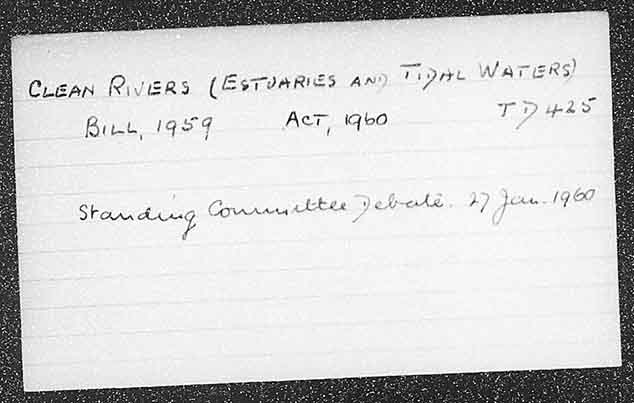 CLEAN RIVERS (ESTUARIES AND TIDAL WATERS)
BILL, 1959 ACT, 1960 TD 425
Standing Committee Debate. 27 Jan. 1960